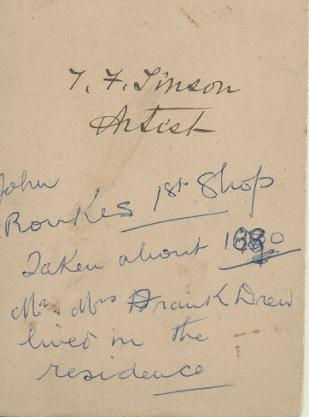 T. F. Tinson
Artist
John
Rourkes 1st Shop
Taken about 1880
Mr. Mrs Frank Drew
lived in the
residence